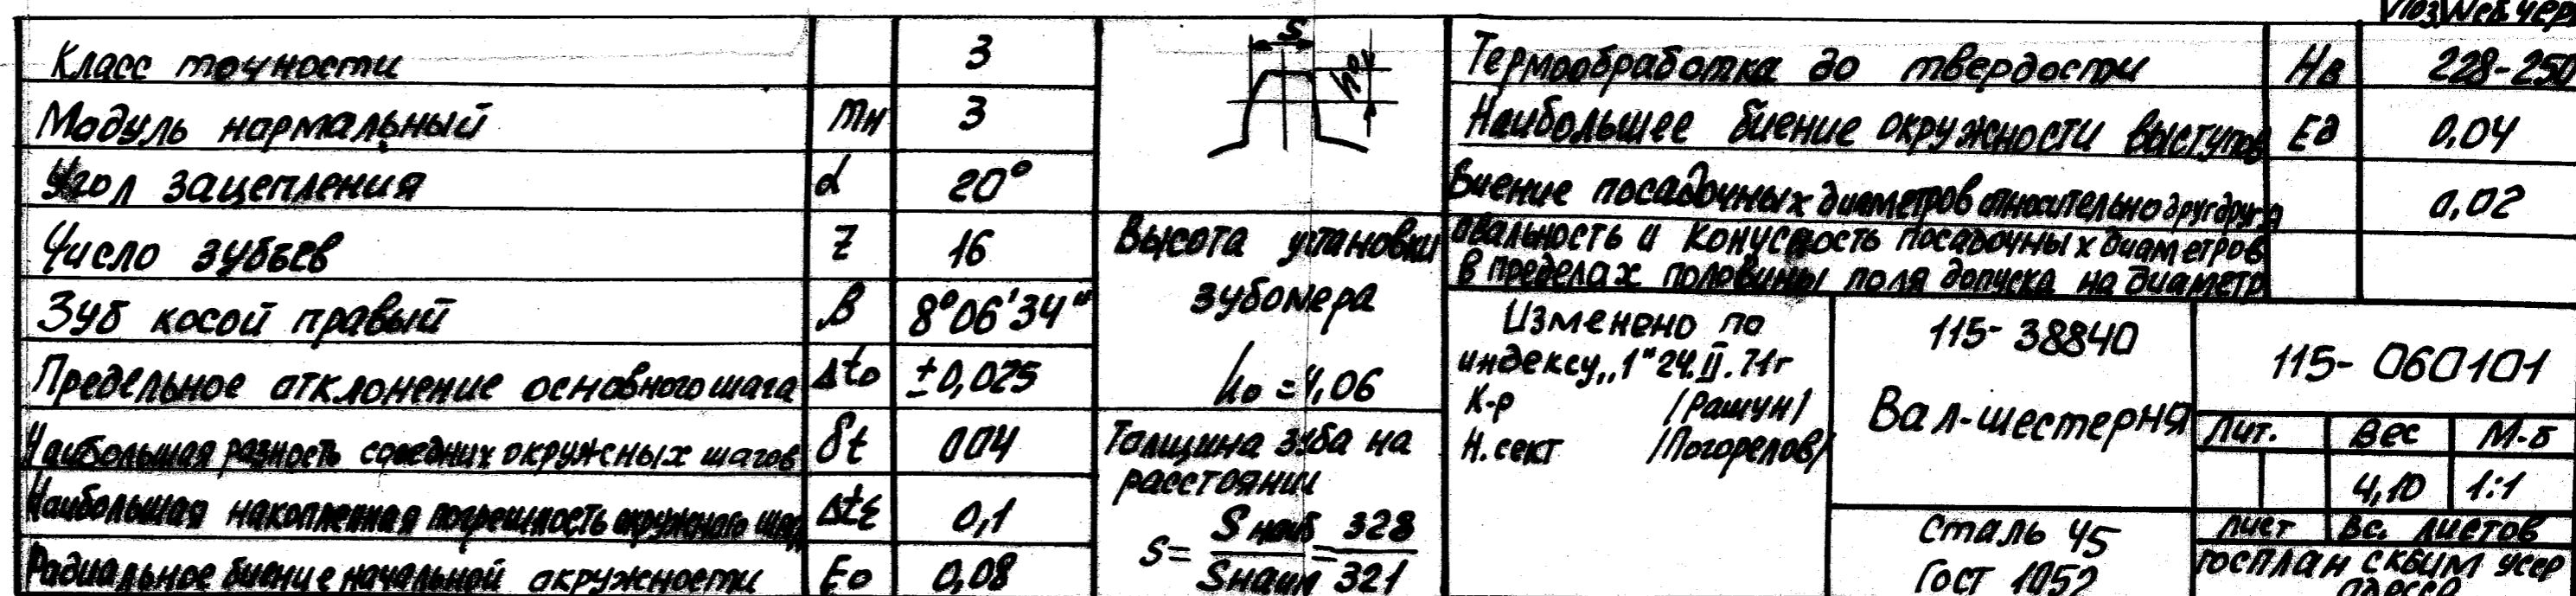 Поз. № чер
Класс точности 3
Модуль нормальный mн 3
Угол зацепления α 20°
Число зубьев Z 16
Зуб косой правый β 8°06'34"
Предельное отклонение основного шага Δto ±0,025
Наибольшая разность соседних окружных шагов δt 004
Наибольшая накопленная погрешность окружного шага ΔtΣ 0,1
Радиальное биение начальной окружности Eo 0,08
S
Высота установки
зубомера
ho = 4,06
Толщина зуба на
расстоянии
S = S наиб / S наим = 328 / 321
Термообработка до твердости Нв 228-250
Наибольшее биение окружности выступов Ед 0,04
Биение посадочных диаметров относительно друг друга 0,02
овальность и конусность посадочных диаметров
в пределах половины поля допуска на диаметр
Изменено по
индексу „1" 24.II.71г
К-р /Рашун/
Н.сект /Погорелов/
115-38840
Вал-шестерня
Сталь 45
Гост 1052
115-060101
Лит. Вес М-б
4,10 1:1
лист Вс. листов
Госплан СКБИМ УССР
Одесса